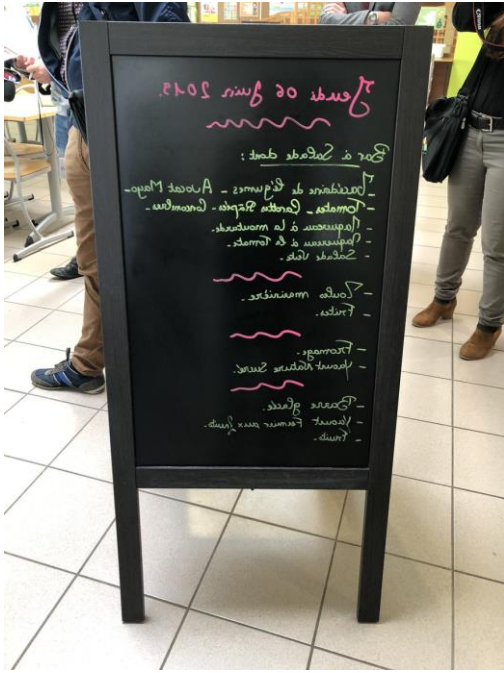 Jeudi 06 Juin 2019.
Bar à Salade dont :
- Macédoine de légumes - Avocat Mayo -
- Tomates - Carottes Râpées - Concombres -
- Maquereau à la moutarde.
- Maquereau à la tomate.
- Salade Verte.
- Moules marinière.
- Frites.
- Fromage.
- Yaourt Nature Sucré.
- Barre glacée.
- Yaourt Fermier aux fruits.
- Fruits.